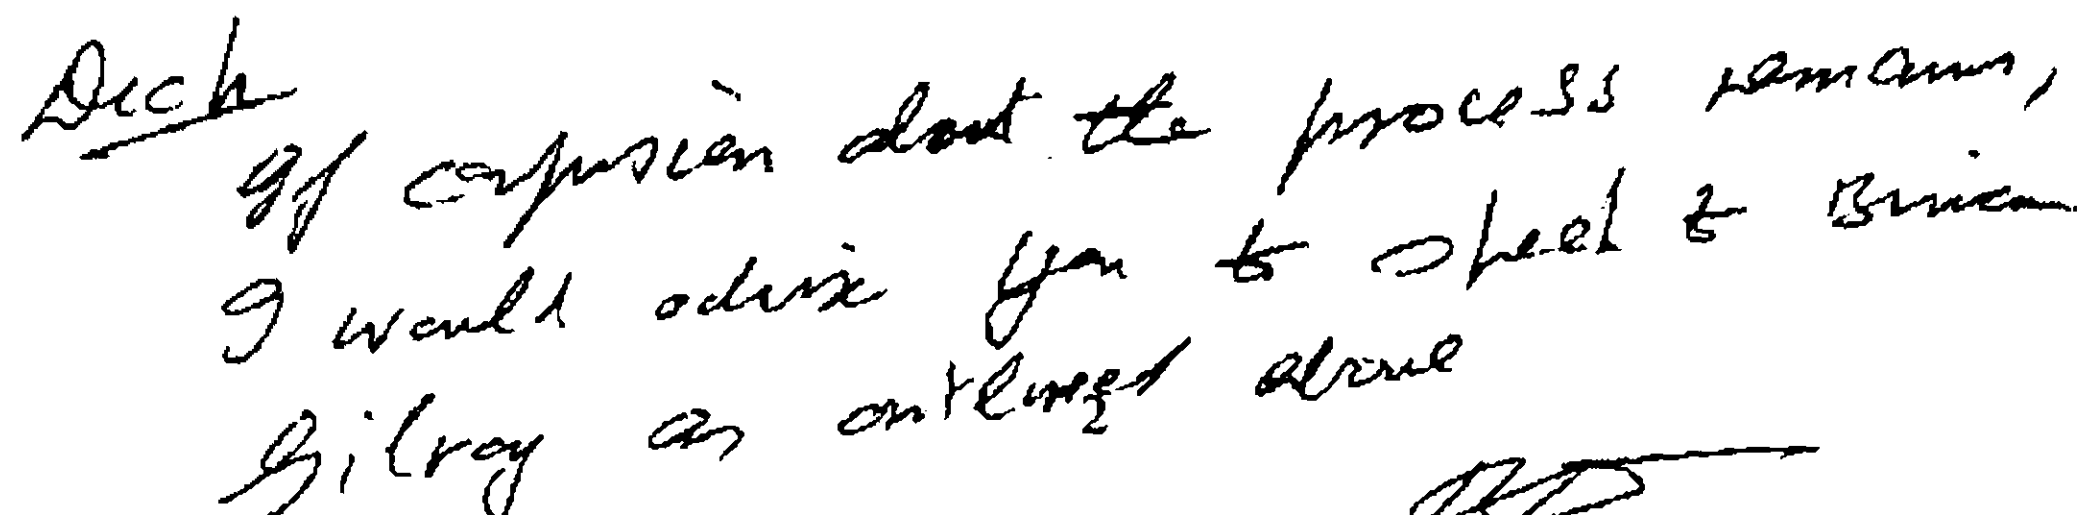 Dick
If confusion about the process remains,
I would advise you to speak to Brian
Gilroy as outlined above